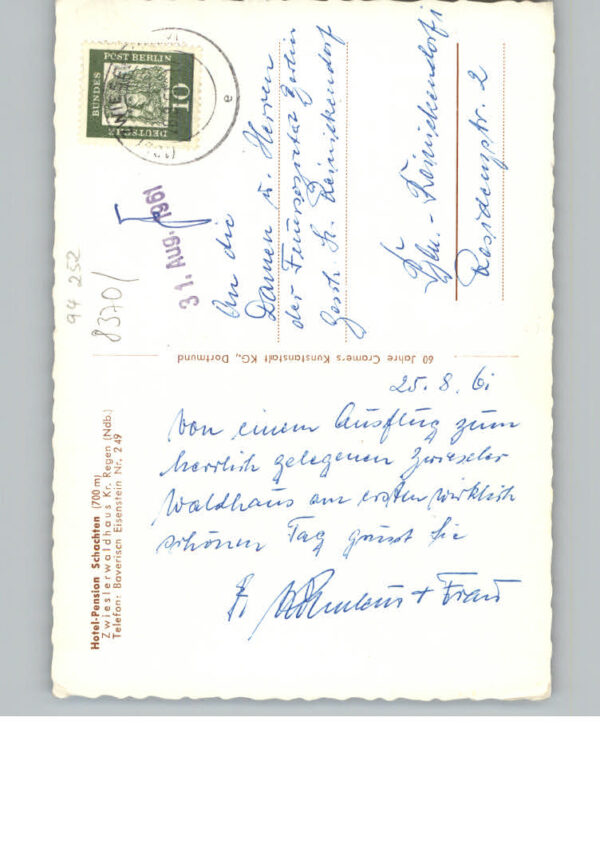 Hotel-Pension Schachten (700 m)
Zwieslerwaldhaus Kr. Regen (Ndb.)
Telefon: Bayerisch Eisenstein Nr. 249
25. 8. 61
Von einem Ausflug zum
herrlich gelegenen Zwieseler
Waldhaus am ersten wirklich
schönen Tag grüsst Sie
+ Frau
60 Jahre Cramers Kunstanstalt KG., Dortmund
94 252
8370/
31. AUG. 1961
DEUTSCHE
BUNDES
POST BERLIN
10
e
An die
Damen u. Herren
der
Reinickendorf
Bln.-Reinickendorf 1
Residenzstr. 2